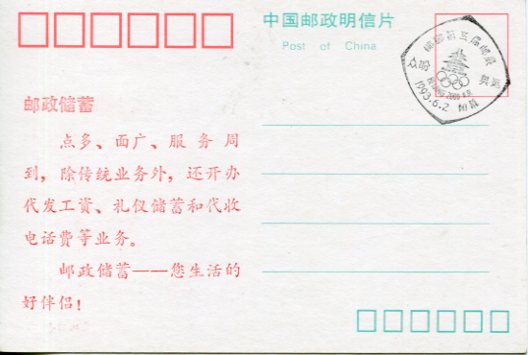 中国邮政明信片
Post of China
1993.6.2
邮政储蓄
点多、面广、服务周
到，除传统业务外，还开办
代发工资、礼仪储蓄和代收
电话费等业务。
邮政储蓄——您生活的
好伴侣！